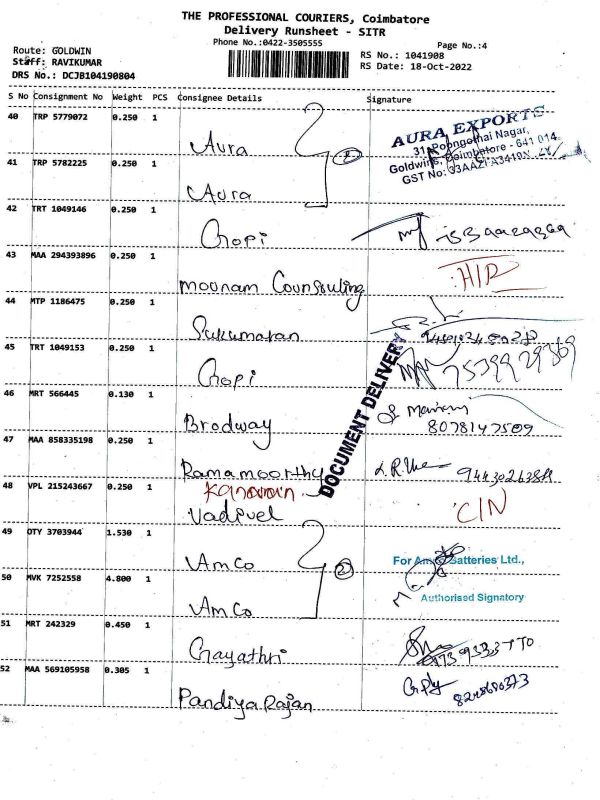 THE PROFESSIONAL COURIERS, Coimbatore
Delivery Runsheet - SITR
Phone No.:0422-3505555
Page No.:4
Route: GOLDWIN
Staff: RAVIKUMAR
DRS No.: DCJB104190804
RS No.: 1041908
RS Date: 18-Oct-2022
S No Consignment No Weight PCS Consignee Details Signature
40 TRP 5779072 0.250 1 Aura
AURA EXPORTS
31, Poongothai Nagar,
Goldwins, Coimbatore - 641 014.
GST No:
41 TRP 5782225 0.250 1 Aura
42 TRT 1049146 0.250 1 Gopi
43 MAA 294393896 0.250 1 moonam Counsuling
44 MTP 1186475 0.250 1 Sukumaran
45 TRT 1049153 0.250 1 Gopi 7539929369
DOCUMENT DELIVERY
46 MRT 566445 0.130 1 Brodway
8078147509
47 MAA 858335198 0.250 1 Ramamoorthy
48 VPL 215243667 0.250 1 Vadivel
49 OTY 3703944 1.530 1 AmCo
2
For Amco Batteries Ltd.,
50 MVK 7252558 4.800 1 AmCo
Authorised Signatory
51 MRT 242329 0.450 1 Gayathri
52 MAA 569105958 0.305 1 PandiyaRajan